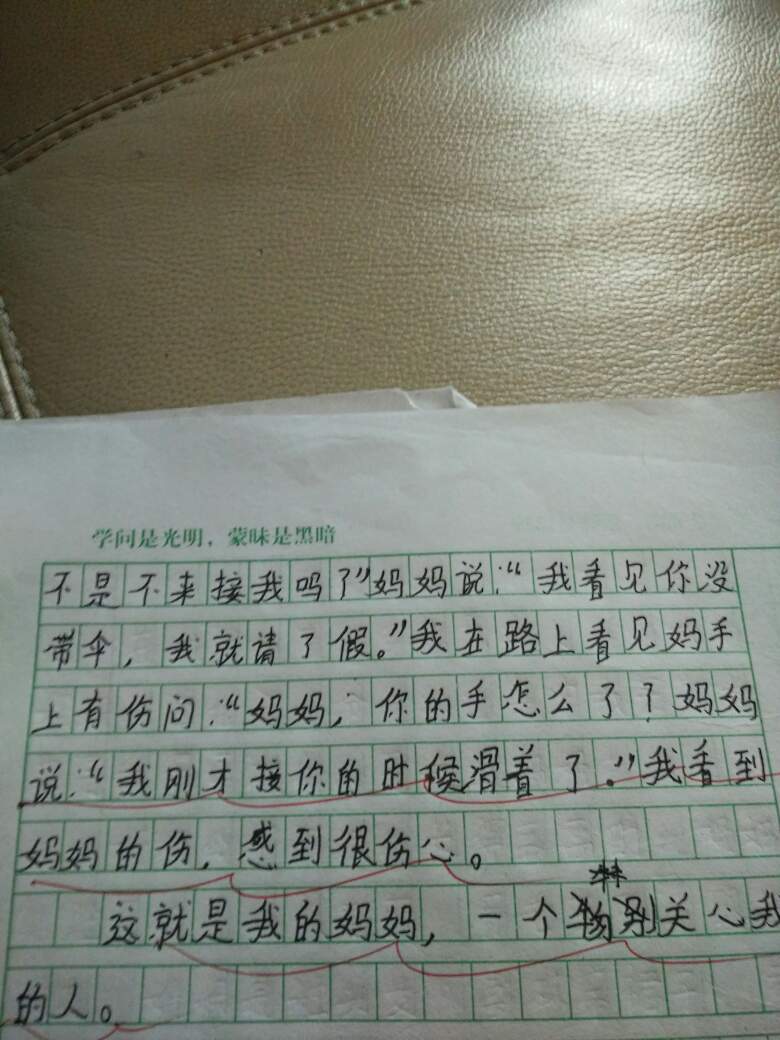 学问是光明，蒙昧是黑暗
不是不来接我吗了”妈妈说：“我看见你没
带伞，我就请了假。”我在路上看见妈手
上有伤问：“妈妈，你的手怎么了？妈妈
说：“我刚才接你的时候滑着了。”我看到
妈妈的伤，感到很伤心。
这就是我的妈妈，一个特别关心我
的人。